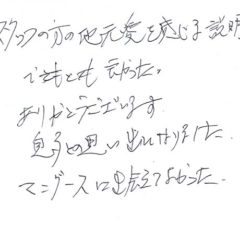 スタッフの方の地元愛を感じる説明
でもとても良かった。
ありがとうございます
息子の思い出になりました。
マニブースに出会えてよかった。